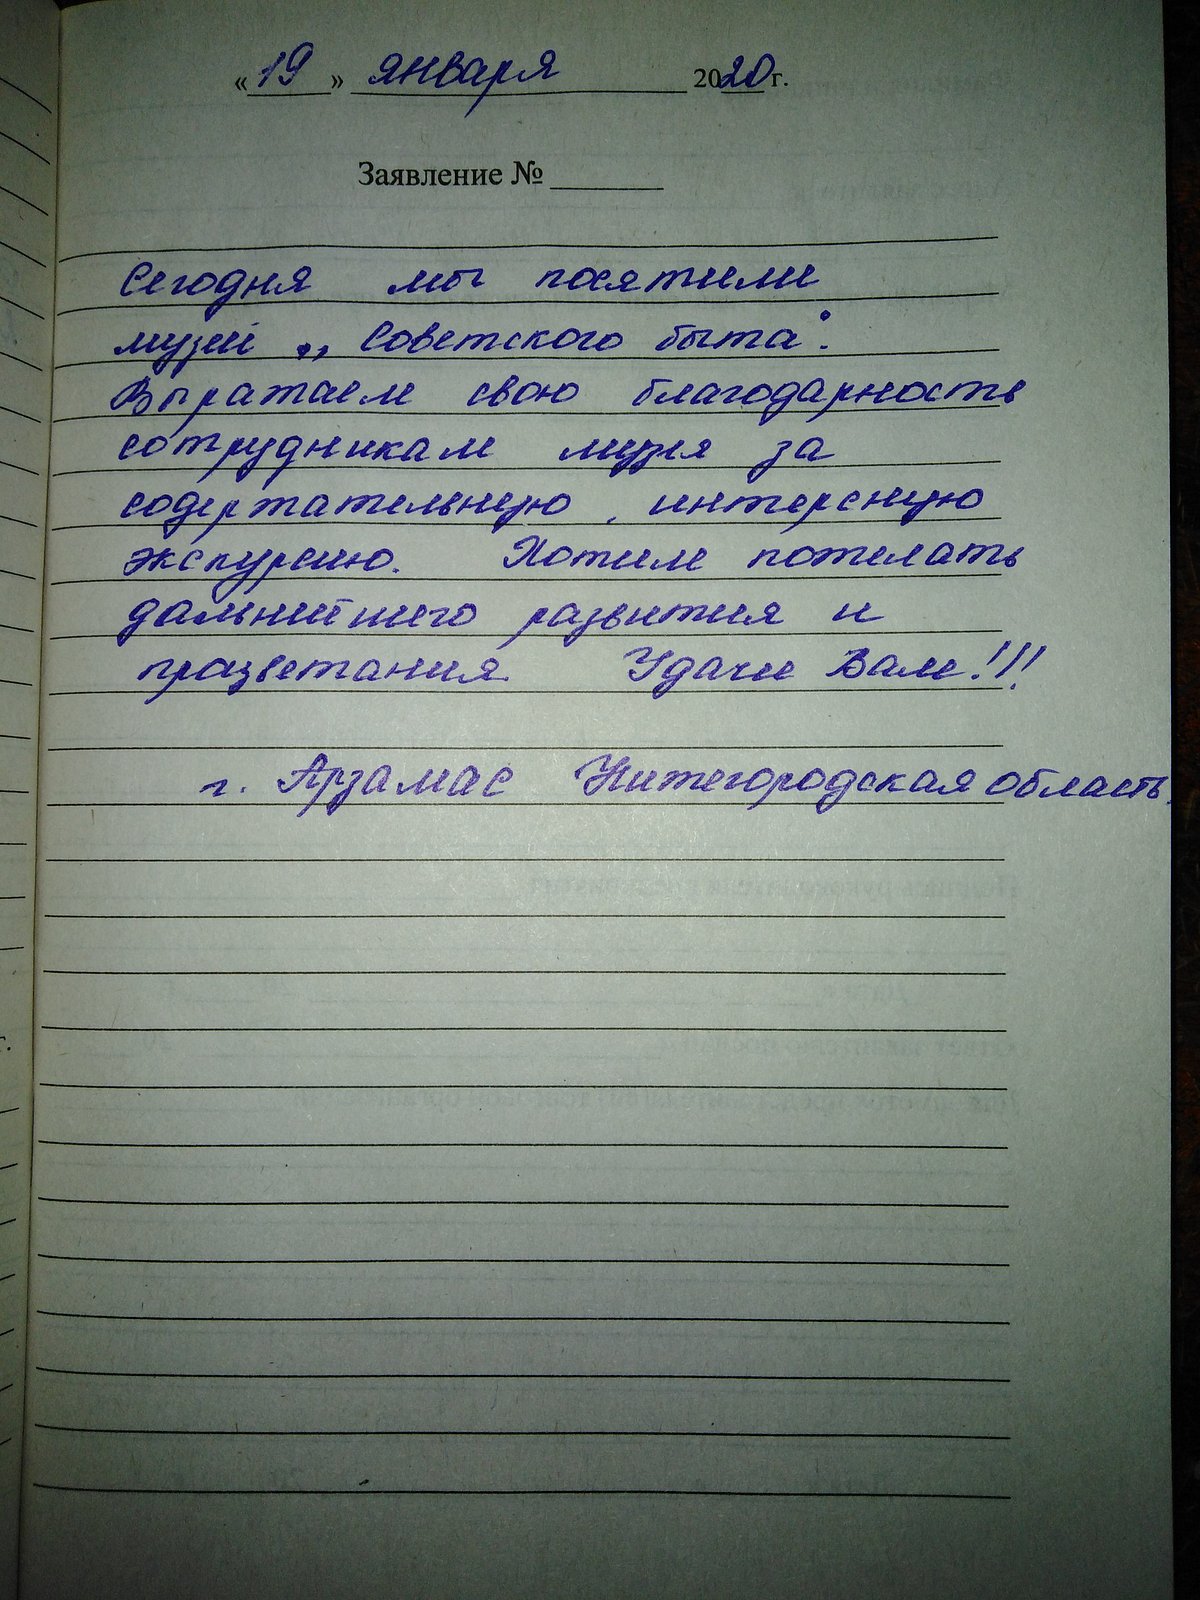 «19» января 2020 г.
Заявление № ______
Сегодня мы посятили
музей „Советского быта".
Выражаем свою благодарность
сотрудникам музея за
содержательную, интерсную
экскурсию. Хотим пожелать
дальнейшего развития и
празветания Удачи Вам!!!
г. Арзамас Нижегородская область.